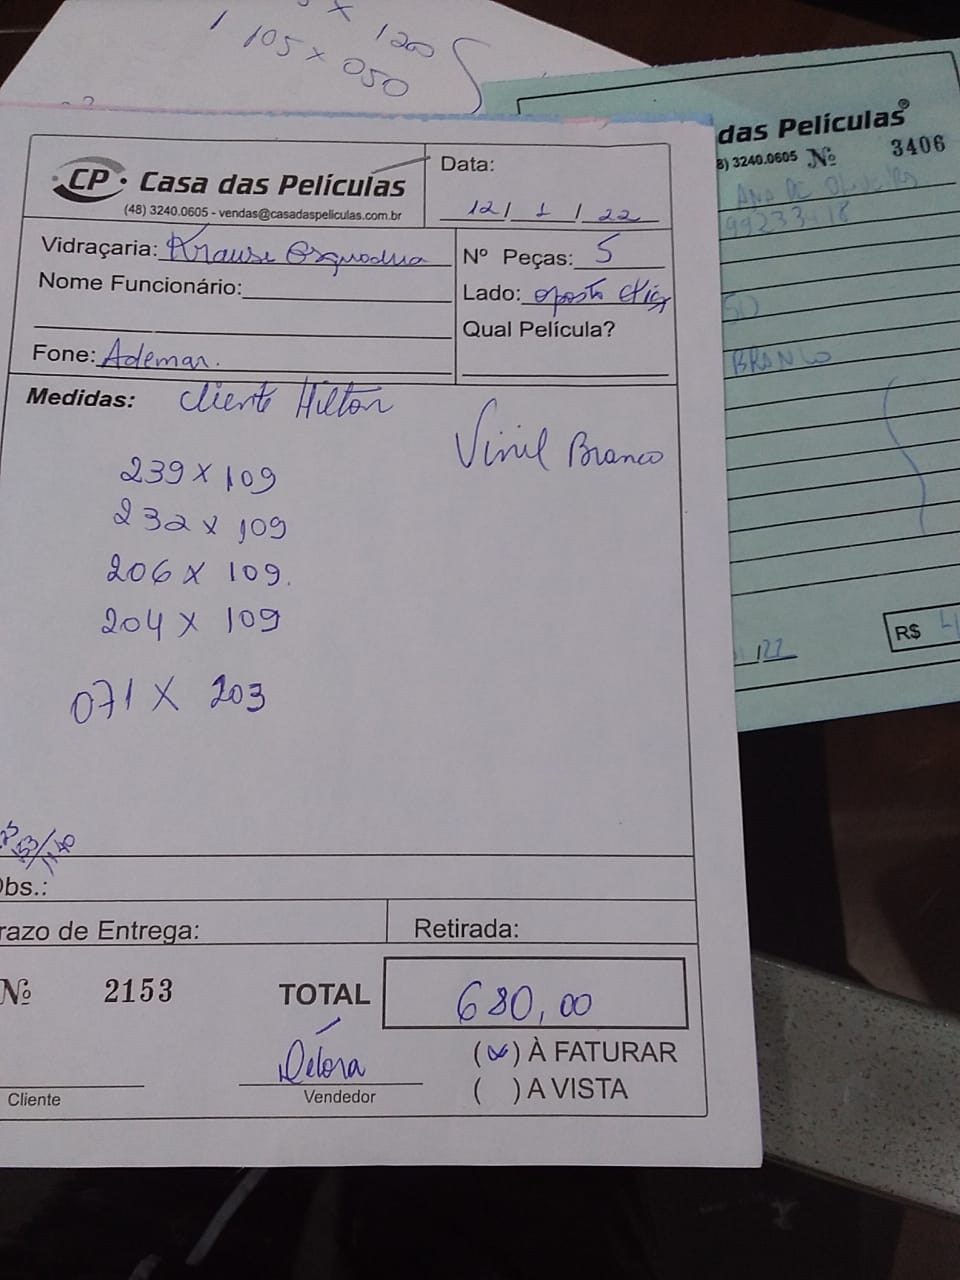 1200
1 105 x 050
CP Casa das Películas
(48) 3240.0605 - vendas@casadaspeliculas.com.br
Data:
12/ 1 / 22
Vidraçaria: Krause Esquadria
Nº Peças: 5
Nome Funcionário:
Lado: oposto
Qual Película?
Fone: Ademar.
Medidas: cliente Hilton
Vinil Branco
239 x 109
232 x 109
206 x 109.
204 x 109
071 x 203
Obs.:
razo de Entrega:
Retirada:
Nº 2153
TOTAL 680,00
Débora
(x) À FATURAR
( ) A VISTA
Cliente
Vendedor
das Películas®
8) 3240.0605 Nº 3406
ANA DE OLIVEIRA
50
BRANCO
/22
R$